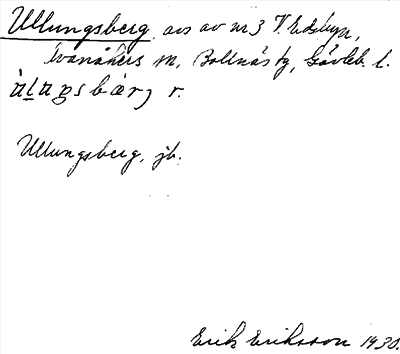 Ullungsberg avs av nr 3 V. Edsbyn,
Ovanåkers sn, Bollnäs tg, Gävleb. l.
r.
Ullungsberg, jb.
Erik Eriksson 1930.